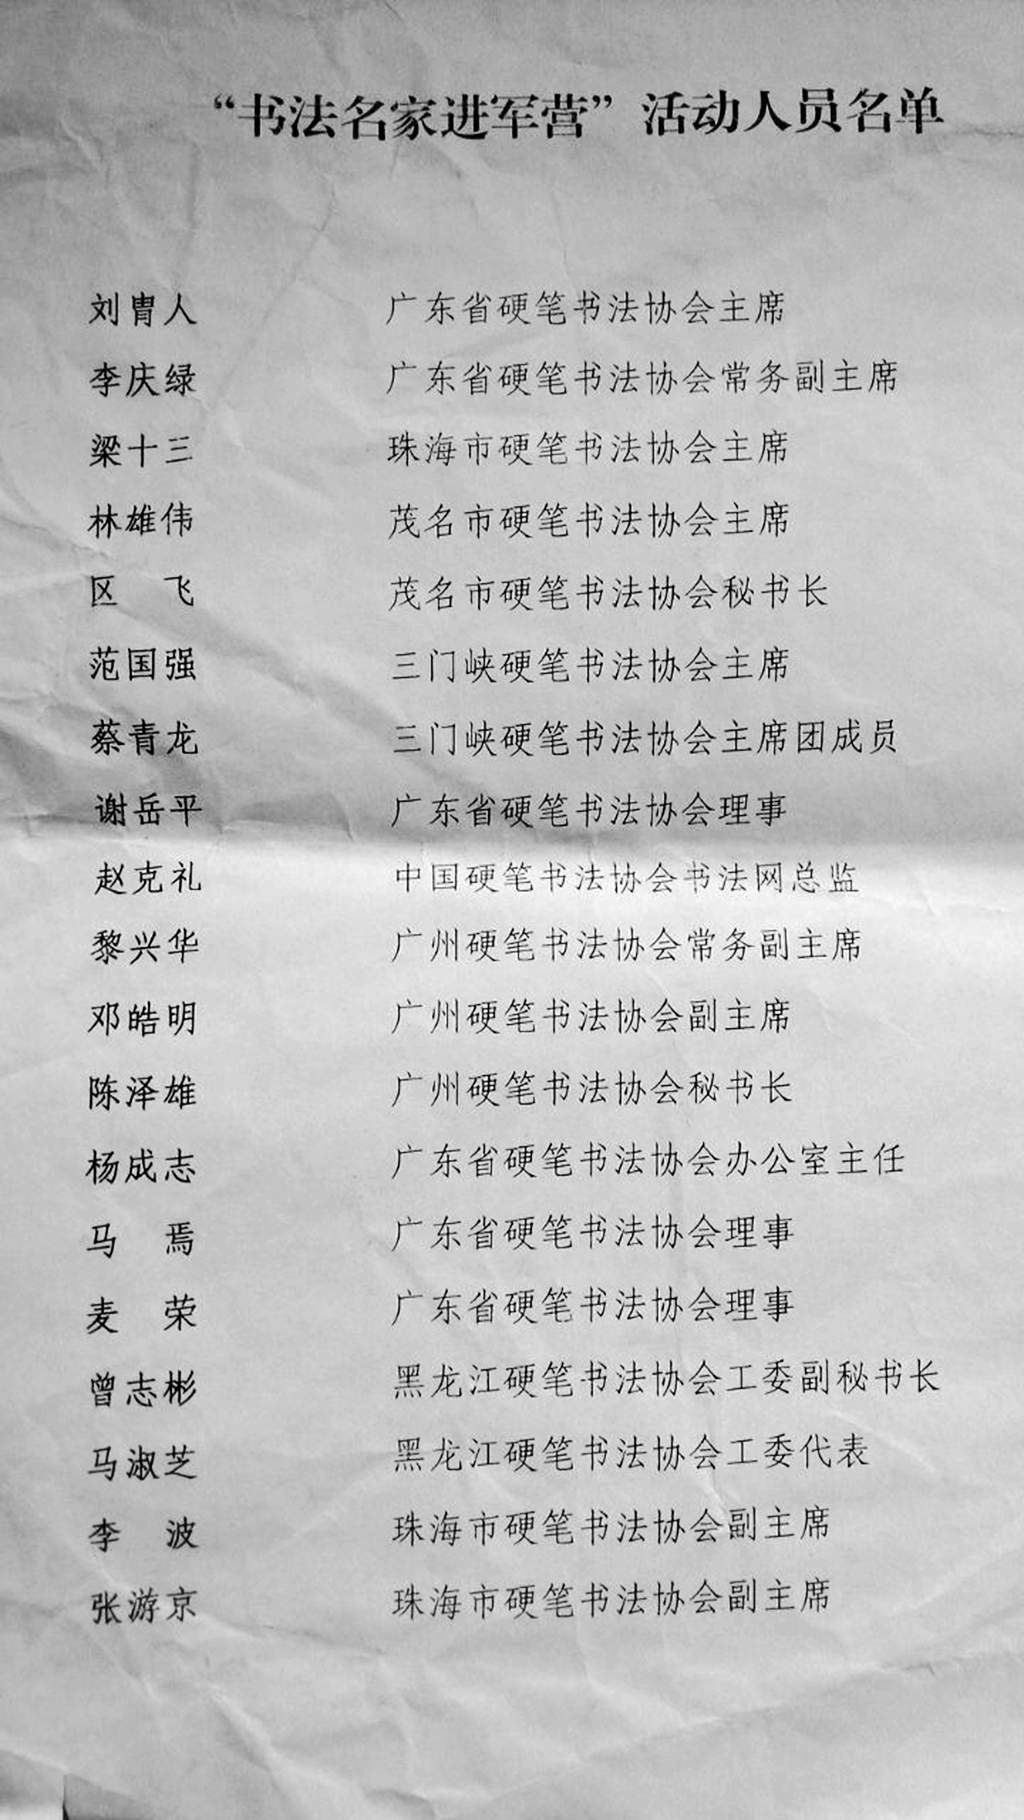 “书法名家进军营”活动人员名单
刘胄人 广东省硬笔书法协会主席
李庆绿 广东省硬笔书法协会常务副主席
梁十三 珠海市硬笔书法协会主席
林雄伟 茂名市硬笔书法协会主席
区 飞 茂名市硬笔书法协会秘书长
范国强 三门峡硬笔书法协会主席
蔡青龙 三门峡硬笔书法协会主席团成员
谢岳平 广东省硬笔书法协会理事
赵克礼 中国硬笔书法协会书法网总监
黎兴华 广州硬笔书法协会常务副主席
邓皓明 广州硬笔书法协会副主席
陈泽雄 广州硬笔书法协会秘书长
杨成志 广东省硬笔书法协会办公室主任
马 焉 广东省硬笔书法协会理事
麦 荣 广东省硬笔书法协会理事
曾志彬 黑龙江硬笔书法协会工委副秘书长
马淑芝 黑龙江硬笔书法协会工委代表
李 波 珠海市硬笔书法协会副主席
张游京 珠海市硬笔书法协会副主席